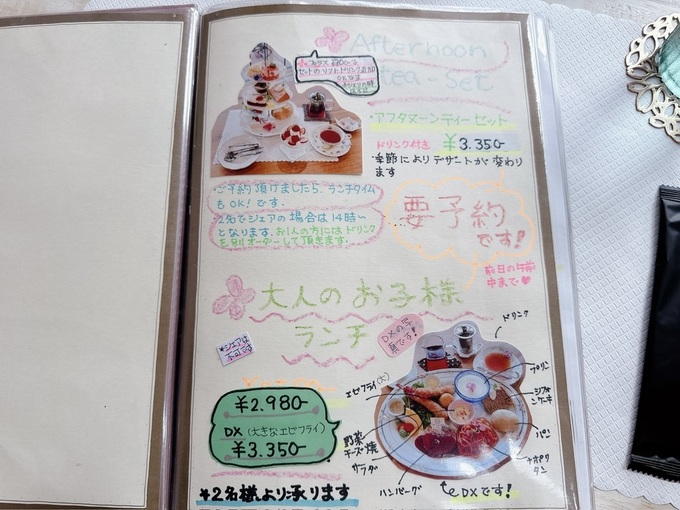 Afternoon
tea set
プラス 800yで
セットのソフトドリンク追加
OKです
・アフタヌーンティーセット
ドリンク付き ¥3.350-
・季節によりデザートが変わり
ます
・ご予約頂けましたら、ランチタイム
もOK!です。
・2名でシェアの場合は14時〜
となります。お1人の方にはドリンク
を別オーダーして頂きます。
要予約
です!
前日の午前
中まで♥
大人のお子様
ランチ
*シェアは
不可です
DXの写
真です!
ドリンク
プリン
シフォ
ンケーキ
パン
ナポリ
タン
エビフライ(大)
野菜
チーズ焼
サラダ
ハンバーグ
DXです!
¥2.980-
DX (大きなエビフライ)
¥3.350-
*2名様より承ります